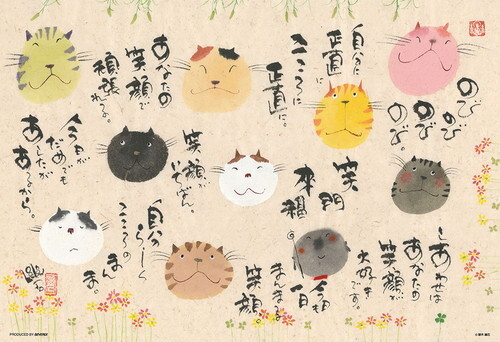 のび
のび
のび
のび
自分に
正直に
こころに
正直に。
あなたの
笑顔で
頑張れるよ。
笑門
来福
笑顔が
いちばん。
今日が
だめでも
あしたが
あるから。
しあわせは
あなたの
笑顔が
大好き
です。
今日も
一日
まんまる
笑顔
自分
らしく
こころの
まんま。
PRODUCED BY